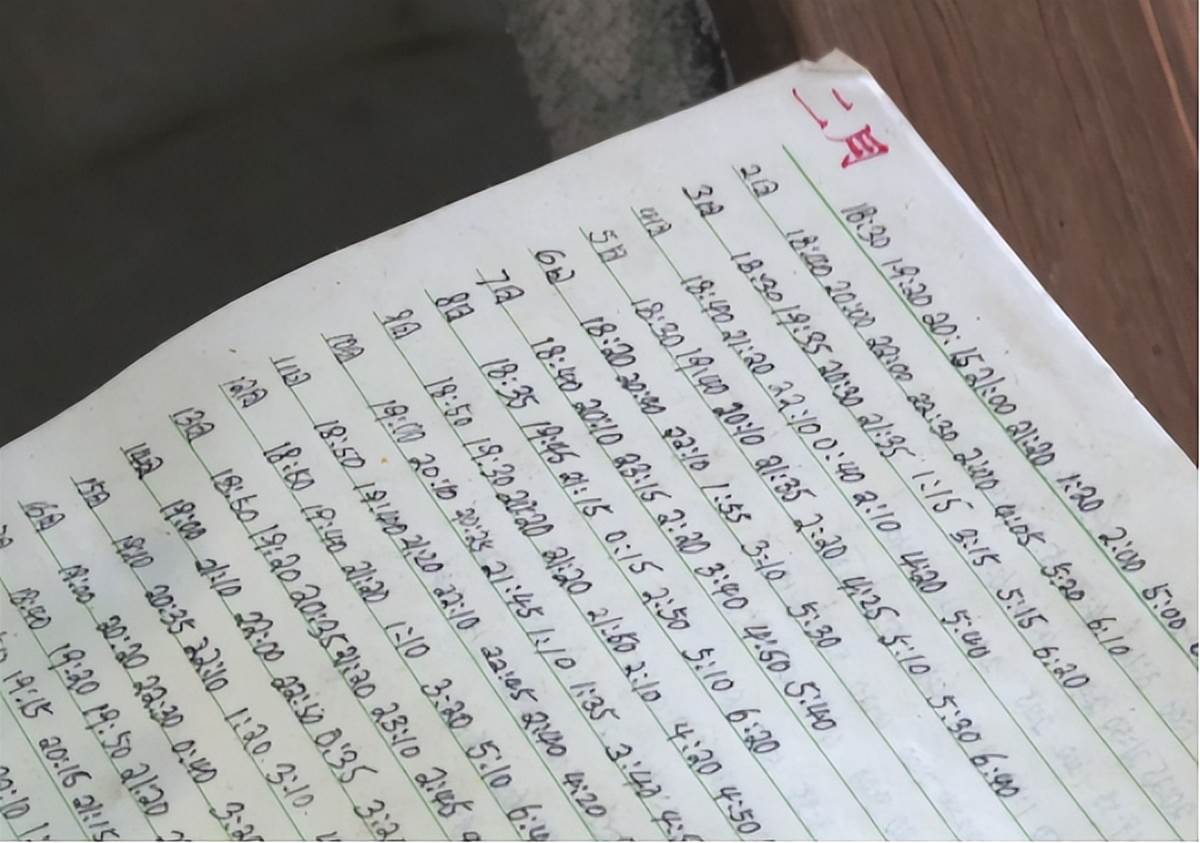 二月
18:30 19:20 20:15 21:00 21:20 1:20 2:00 5:00
2日 18:40 20:00 22:00 22:30 2:40 4:05 5:20 6:10
3日 18:30 19:35 20:30 21:35 1:15 3:15 5:15 6:20
4日 18:40 21:20 22:10 0:40 2:10 4:20 5:40
5日 18:30 19:40 20:10 21:35 2:30 4:25 5:10 5:30 6:40
6日 18:20 20:40 22:10 1:55 3:10 5:30
7日 18:40 20:10 23:15 2:20 3:40 4:50 5:40
8日 18:35 19:45 21:15 0:15 2:50 5:10 6:20
9日 18:50 19:30 20:20 21:20 21:50 2:10 4:20 4:50
10日 19:00 20:10 20:25 21:45 1:10 1:35 3:40
11日 18:50 19:40 21:20 22:10 22:45 2:40 4:20
12日 18:50 19:40 21:20 1:10 3:20 5:10
13日 18:50 19:20 20:35 21:20 23:10 21:45
14日 19:00 21:10 22:00 22:50 0:35
15日 19:10 20:35 22:10 1:20 3:10
16日 19:00 20:20 22:30 0:40 3:20
18:40 19:20 19:50 21:20
19:15 20:15 21:15
20:10